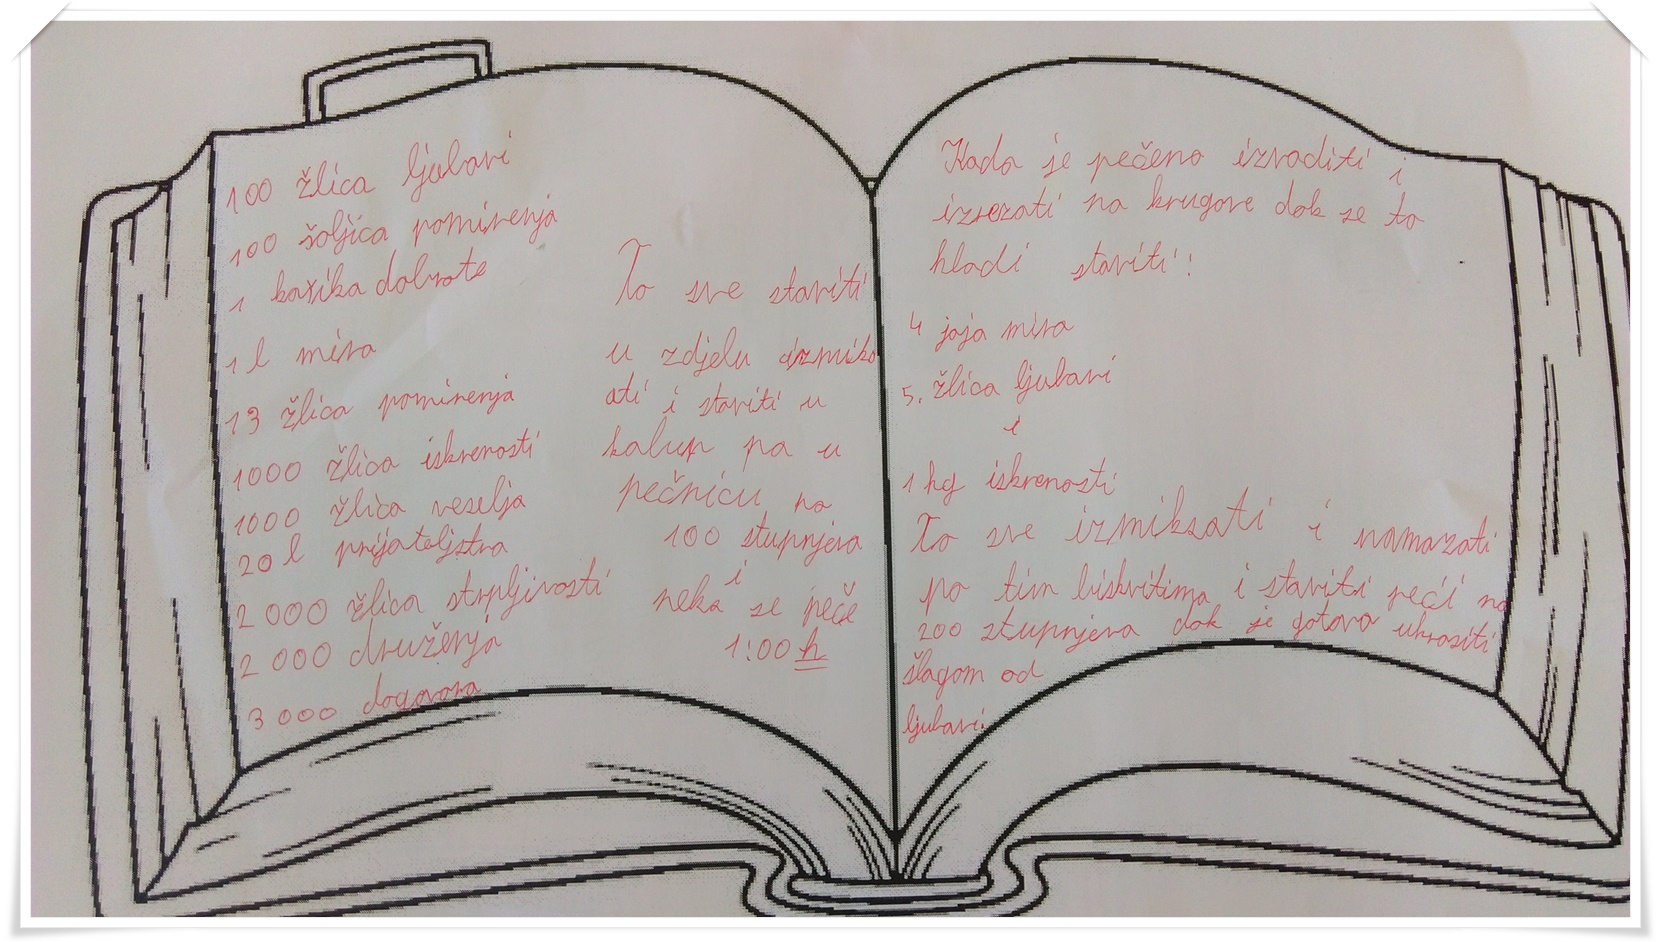 100 žlica ljubavi
100 šoljica pomirenja
1 kašika dobrote
1 l mira
13 žlica pomirenja
1000 žlica iskrenosti
1000 žlica veselja
20 l prijateljstva
2 000 žlica strpljivosti
2 000 druženja
3 000 dogovora
To sve staviti
u zdjelu izmiks
ati i staviti u
kalup pa u
pečnicu na
100 stupnjeva
i
neka se peče
1:00 h
Kada je pečeno izvaditi i
izrezati na krugove dok se to
hladi staviti!
4 jaja mira
5. žlica ljubavi
i
1 kg iskrenosti
To sve izmiksati i namazati
po tim biskvitima i staviti peći na
200 stupnjeva dok je gotovo ukrasiti
šlagom od
ljubavi!